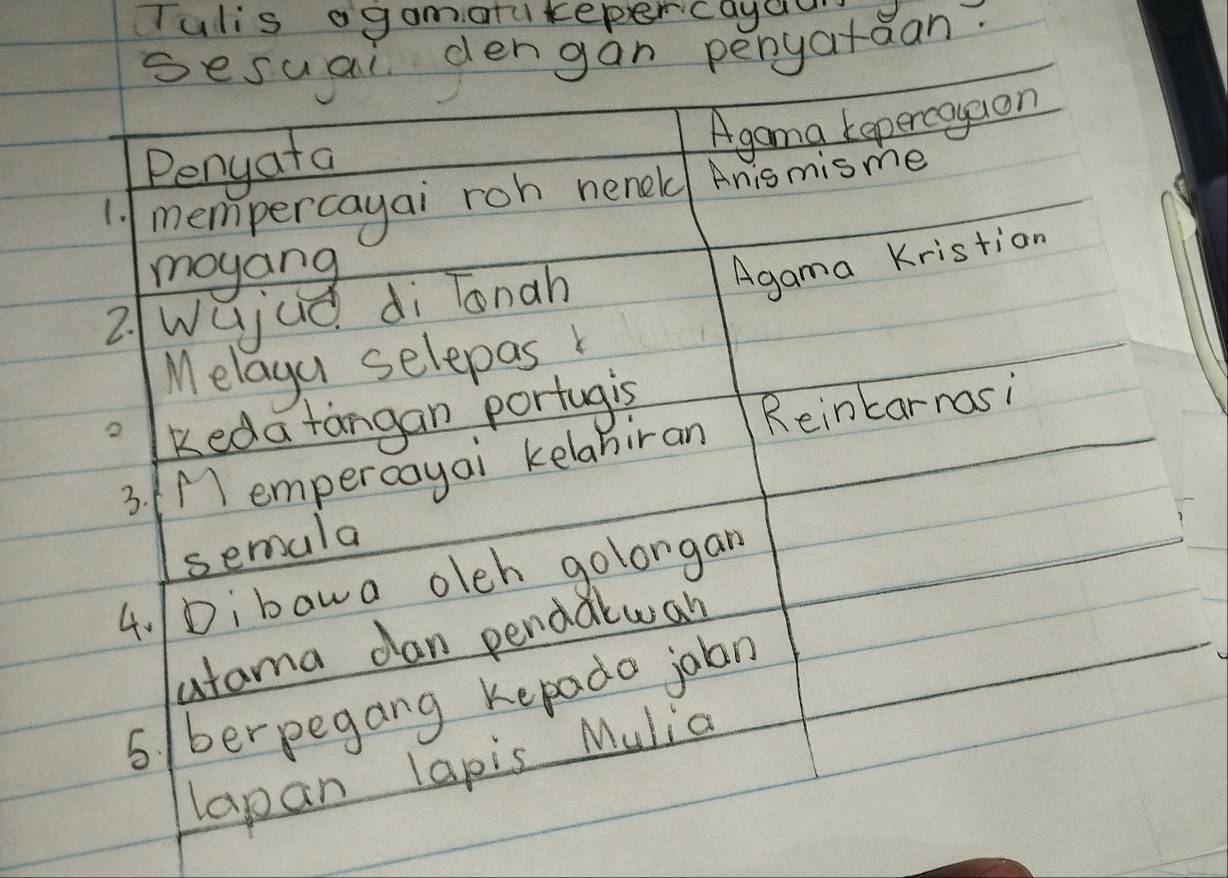 Tulis agama
sesuai dengan penyataan.
Penyata
Agama kepercayaan
1. mempercayai roh nenek
moyang
Anismisme
2. Wujud di Tanah
Melayu selepas
Kedatangan portugis
Agama Kristian
3. Mempercayai kelahiran
semula
Reinkarnasi
4. Dibawa oleh golongan
utama dan pendakwah
5. berpegang kepada jalan
lapan lapis Mulia